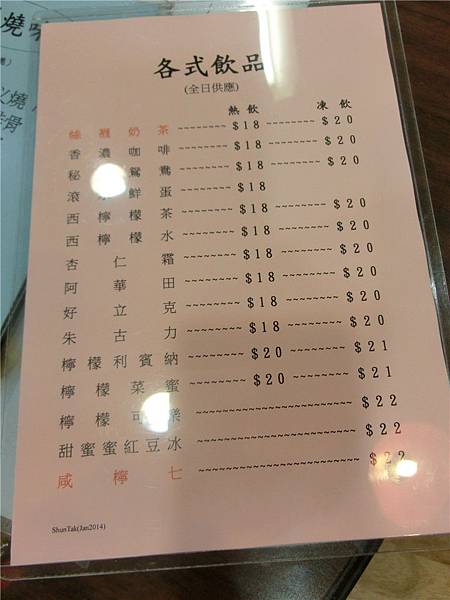 燒
燒
骨
各式飲品
(全日供應)
熱飲 凍飲
絲襪奶茶 ~~~~~~~~ $18 ~~~~~~~~ $20
香濃咖啡 ~~~~~~~~ $18 ~~~~~~~~ $20
秘 鴛鴦 ~~~~~~~~ $18 ~~~~~~~~ $20
滾 鮮蛋 ~~~~~~~~ $18
西檸檬茶 ~~~~~~~~ $18 ~~~~~~~~ $20
西檸檬水 ~~~~~~~~ $18 ~~~~~~~~ $20
杏仁霜 ~~~~~~~~ $18 ~~~~~~~~ $20
阿華田 ~~~~~~~~ $18 ~~~~~~~~ $20
好立克 ~~~~~~~~ $18 ~~~~~~~~ $20
朱古力 ~~~~~~~~ $18 ~~~~~~~~ $20
檸檬利賓納 ~~~~~~~~ $20 ~~~~~~~~ $21
檸檬菜蜜 ~~~~~~~~ $20 ~~~~~~~~ $21
檸檬可樂 ~~~~~~~~~~~~~~~~~~~~~~~~ $22
甜蜜蜜紅豆冰 ~~~~~~~~~~~~~~~~~~~~~~~~ $22
咸檸七 ~~~~~~~~~~~~~~~~~~~~~~~~ $22
ShunTak(Jan2014)